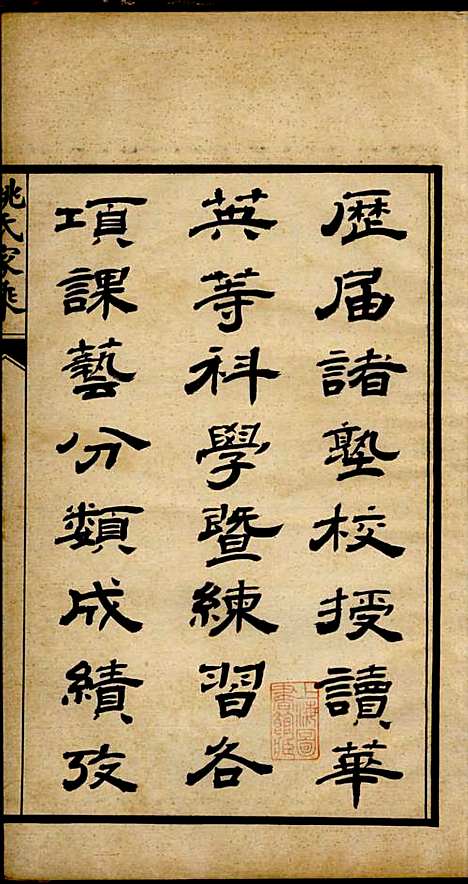 歷届諸塾校授讀華
英䓁科學暨練習各
項課藝分類成績攷
姚氏家乘
上海圖書館藏